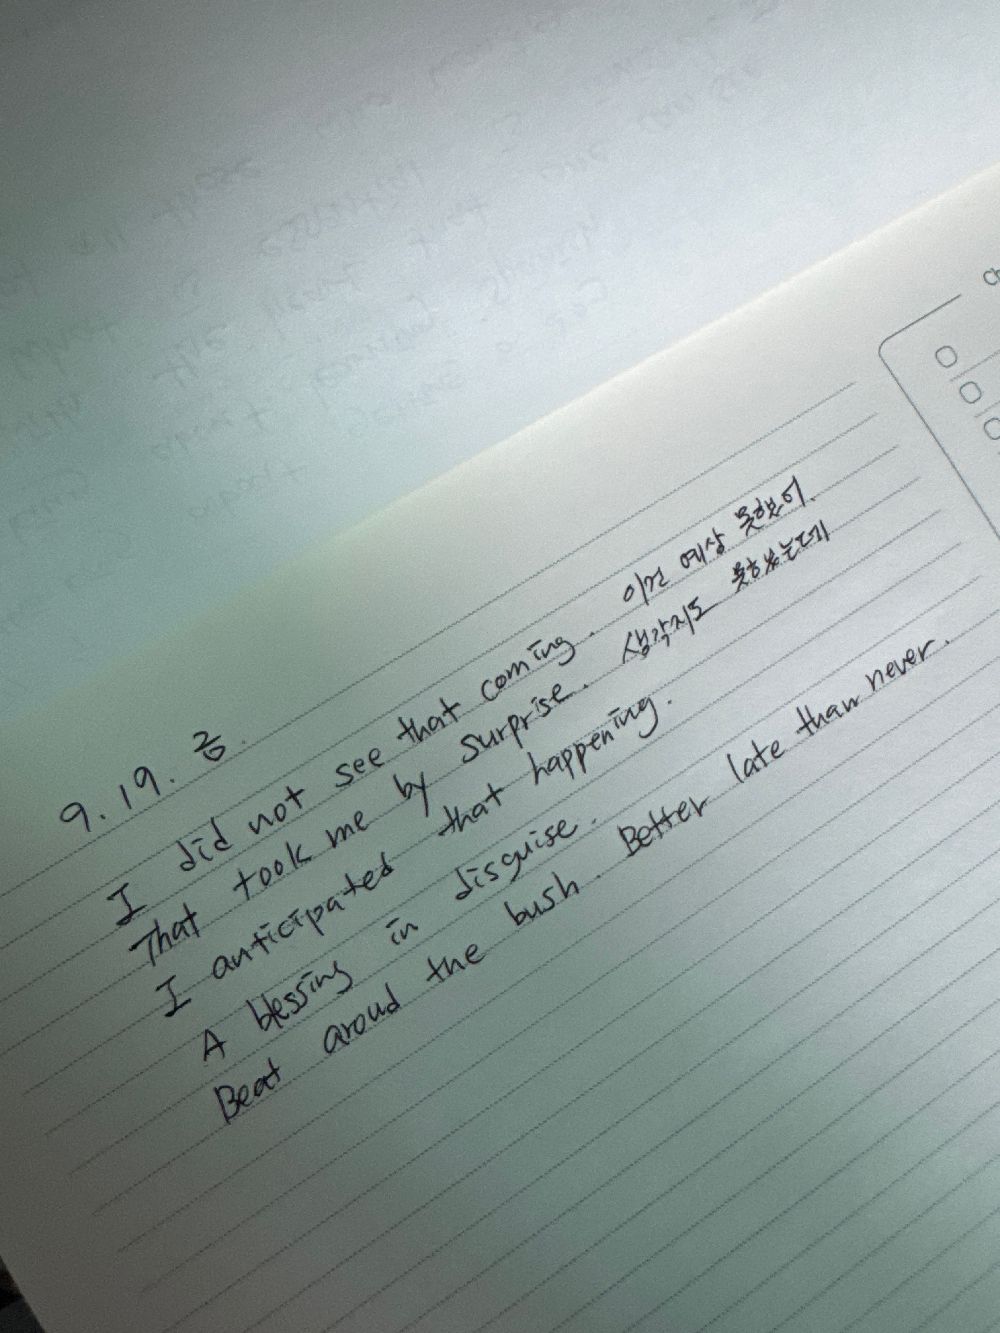 9. 19. 금.
I did not see that coming. 이건 예상 못했어.
That took me by surprise. 생각지도 못했는데
I anticipated that happening.
A blessing in disguise.
Beat aroud the bush. Better late than never.